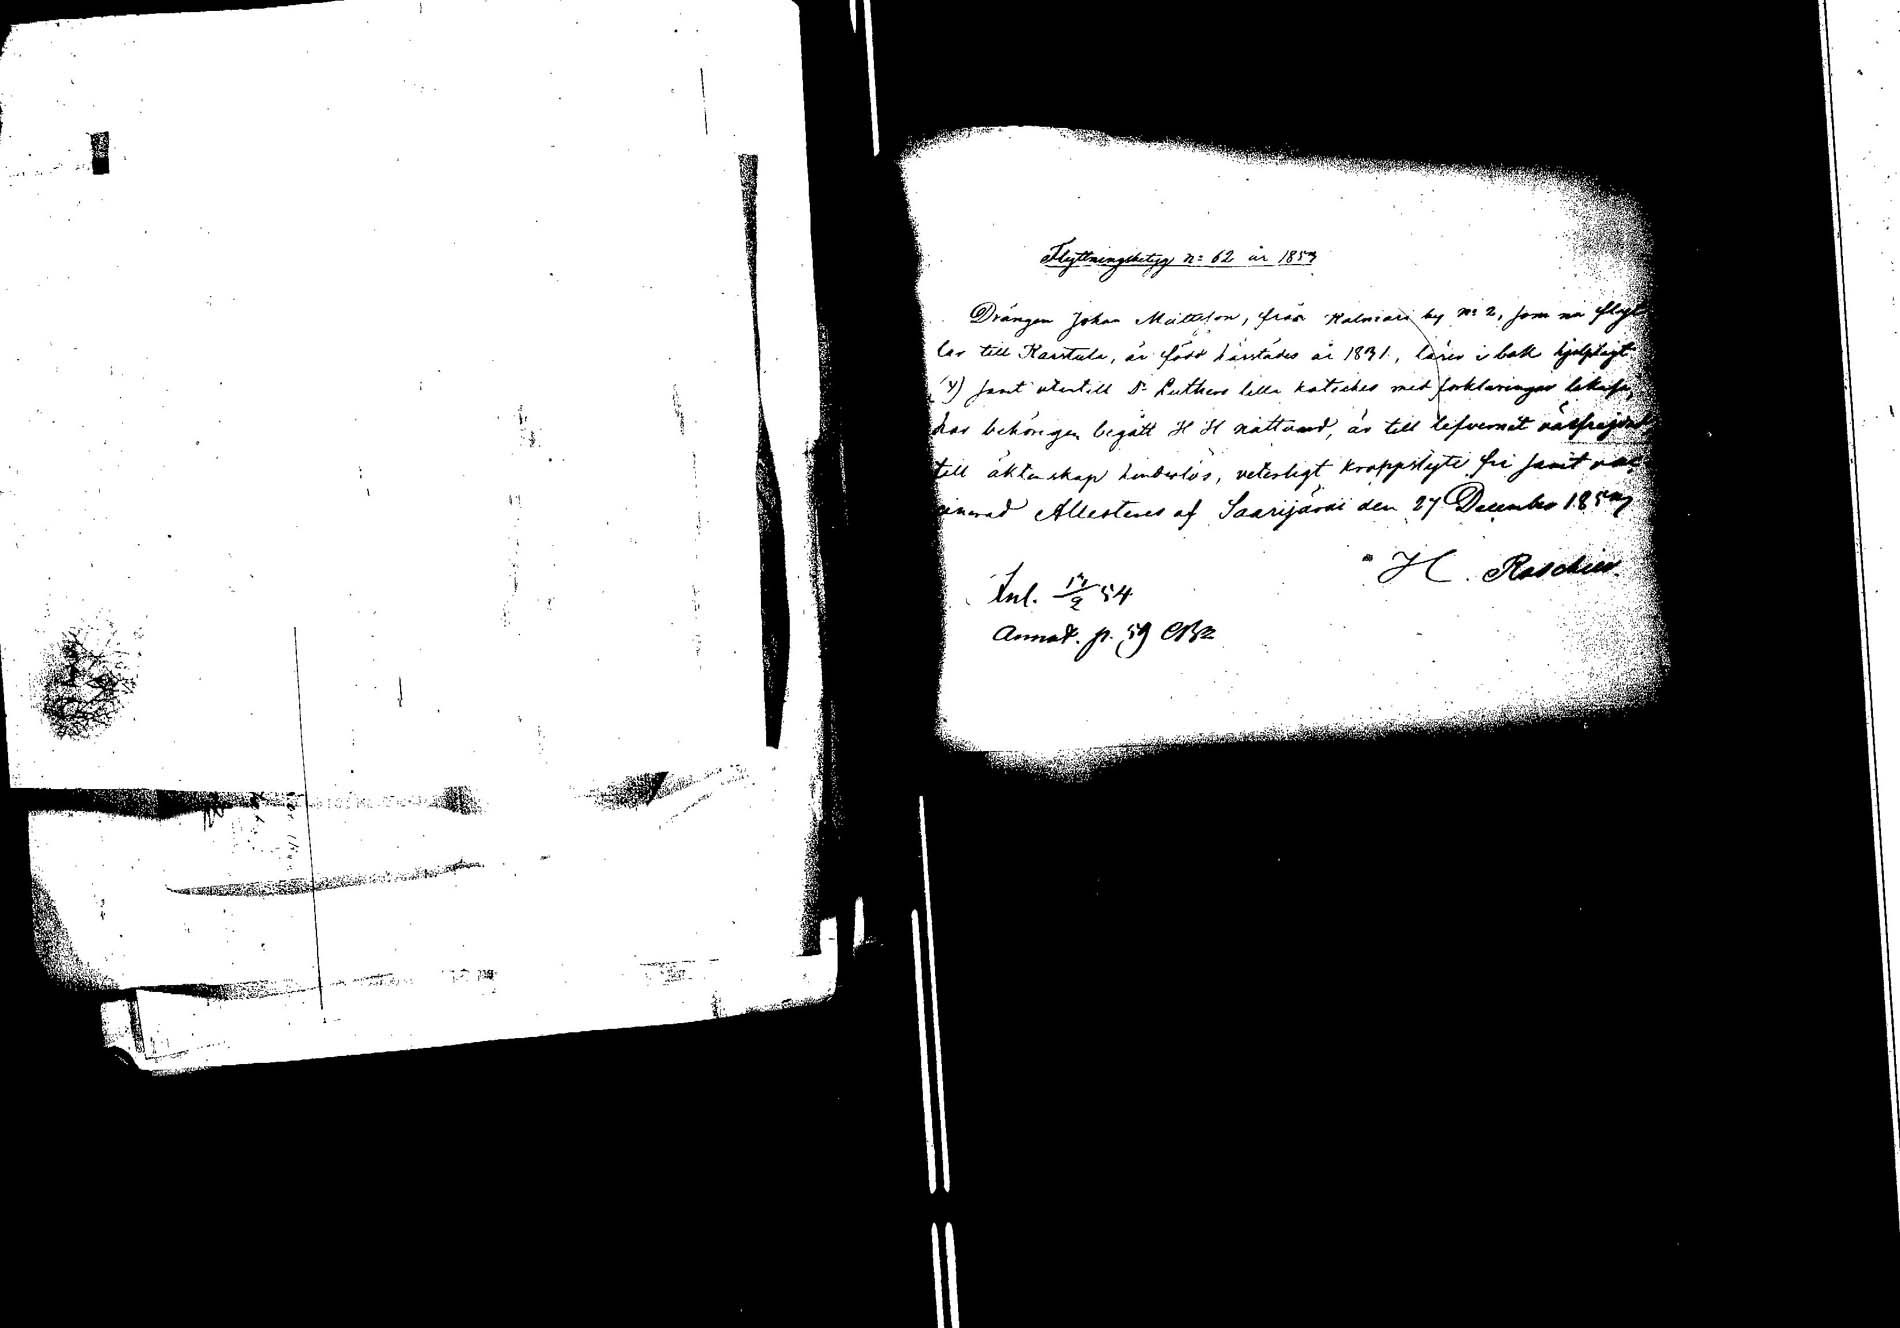 Flyttningsbetyg n: 62 år 1853
Drängen Johan Mattsson, från Kalmari by n: 2, som nu flyt
tar till Karstula, är född härstädes år 1831, läser i bok hjelpligt
samt utantill Dr Luthers lilla kateches med förklaringar
har behörigen begått H H nattvard, är till lefvernet välfrejdad
till äktenskap hinderlös, veterligt kroppslyte fri samt vac
cinerad Attesteras af Saarijärvi den 27 December 1853
H. Roschier.
Inl. 17/2 54
Annot. p. 59